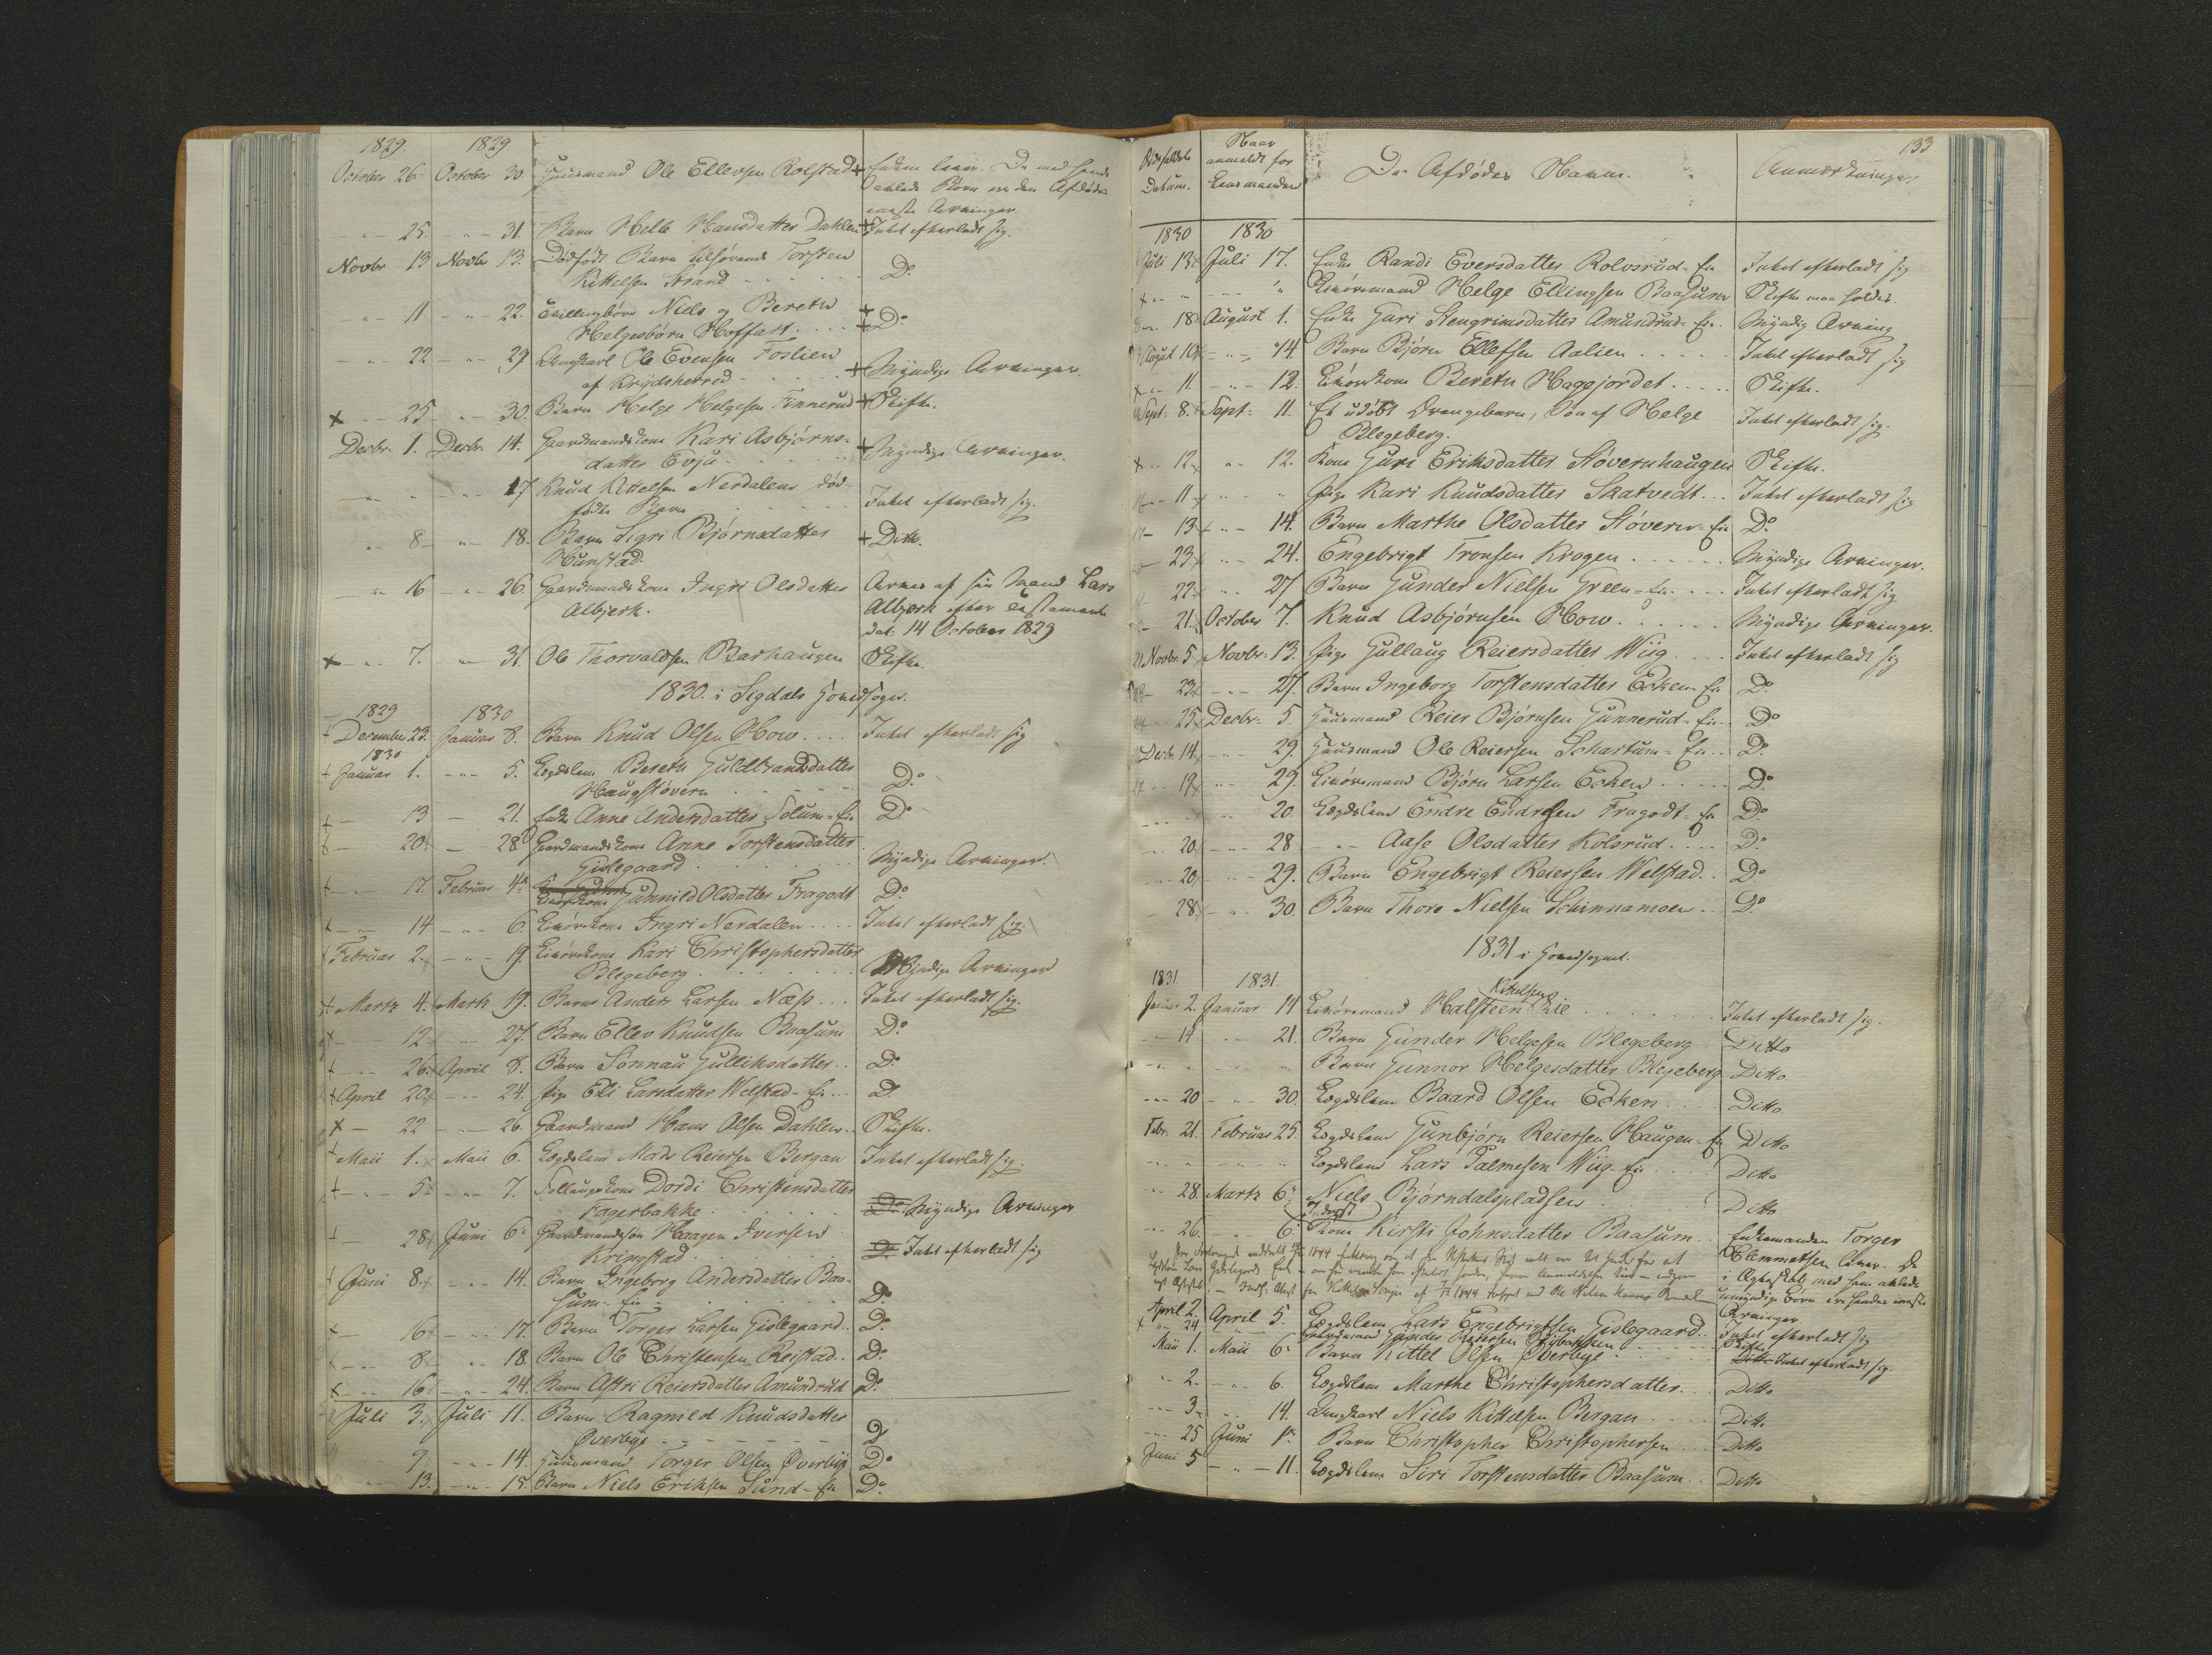 1829. 1829
October 26 October 30 Huusmand Ole Ellevsen Rolstad + Enken lever. De med hende
avlede Børn ere den Afdødes
eneste Arvinger
- " - 25. - " - 31. Barn Helle Hansdatter Dahlen + Intet efterladt sig.
Novbr 13 Novbr 13. Dødfødt Barn tilhørende Torsten
Kittelsen Strand - - - - Do
- " - 11 - " - 22. Tvillingbørn Niels og Berethe
Helgesbørn Hoffart. . . . Do
- " - 22 - " - 29 Ungkarl Ole Evensen Foslien
af Krydsherred - - - - + Myndige Arvinger.
x - " - 25 - " - 30. Barn Helge Helgesen Finnerud + Skifte.
Decbr. 1. Decbr. 14. Gaardmandskone Kari Asbjørns-
datter Evju - - - + Myndige Arvinger.
- " - " - " - 17 Knud Kittelsen Nerdalens død-
fødte Barn - - - Intet efterladt sig.
- " 8 - " - 18. Barn Sigri Bjørnsdatter
Hunstad. + Ditto.
- " - 16 - " - 26. Gaardmandskone Ingri Olsdatter
Albjerk. Arves af sin Mand Lars
Albjerk efter Testamente
dat: 14 October 1829
x - " - 7. - " - 31. Ole Thorvaldsen Barhaugen Skifte.
1830. i Sigdals Hovedsogn.
1829 1830
+ December 23. Januar 8. Barn Knud Olsen How. . . . Intet efterladt sig
1830
+ Januar 1. - " - 5. Lægdslem Berethe Guldbrandsdatter
Haugstøvern - - - Do
+ - 13 - 21. Enke Anne Andersdatter Solum-Eie Do
- 20. - 28 Gaardmandskone Anne Torstensdatter
Gislegaard . . . Myndige Arvinger.
+ - " - 17 Februar 4de Gunnild Olsdatter Fragodt Do
- " - 14 - " - 6. Livørekone Ingri Nerdalen . . . . Intet efterladt sig.
+ Februar 2. - " - 19. Livørekone Kari Christophersdatter
Blegeberg . . . Myndige Arvinger
+ Martz 4. Martz 19. Barn Anders Larsen Næss . . . Intet efterladt sig.
x - 12 - " 27. Barn Ellev Knudsen Baasum Do
+ - " - 26. April 8. Barn Sønnau Gulliksdatter . . Do
+ April 20. - " - 24. Pige Eli Larsdatter Welstad-Eie . . . Do
x - 22 - " - 26. Gaardmand Hans Olsen Dahlen. Skifte.
+ Maii 1. Maii 6. Lægdslem Mads Reiersen Bergan Intet efterladt sig.
+ - " - 5. - " - 7. Follaugskone Dordi Christensdatter
Fagerbakke . . . Myndige Arvinger
+ - 28. Juni 6. Gaardmandssøn Haagen Iversen
Kringstad . . . Intet efterladt sig
+ Juni 8. - " - 14. Barn Ingeborg Andersdatter Baa-
sum-Eie - . . . Do
x - 16 - " - 17. Barn Torger Larsen Gislegaard . . Do
x - " - 8 - " - 18. Barn Ole Christensen Reistad . . Do
x - " - 16 - " - 24. Barn Astri Reiersdatter Amundrud Do
Juli 3. Juli 11. Barn Ragnild Knudsdatter
Øverbye - - - Do
9. - " - 14. Huusmand Torger Olsen Øverbye Do
- 13. - " - 15. Barn Niels Eriksen Lund-Eie Do
133
Dødsfaldets Datum. Naar anmeldt for Lensmanden De Afdødes Navne. Anmærkninger
1830 1830
Juli 13. Juli 17. Enke Randi Eversdatter Rolvsrud-Eie Intet efterladt sig
x - " - " - " Livøremand Helge Ellingsen Baasum Skifte maa holdes.
- 18 August 1. Enke Guri Stengrimsdatter Amundrud-Eie. Myndig Arving
August 10 - " - 14. Barn Bjørn Ellefsen Aalien . . . . Intet efterladt sig
x - " 11 - " - 12. Livørekone Berethe Hagejordet . . . . Skifte.
Sept: 8. Sept: 11. Et udøbt Drengebarn, Søn af Helge
Blegeberg. Intet efterladt sig.
x - " 12 " " 12. Kone Guri Eriksdatter Støvernhaugen Skifte.
- 11 - " " Pige Kari Knudsdatter Skatvedt . . . Intet efterladt sig
- 13 " - 14. Barn Marthe Olsdatter Støvern-Eie Do
- 23 " - 24. Engebrigt Tronsen Krogen . . . . . Myndige Arvinger.
- 22 " - 27 Barn Gunder Nielsen Green-Eie . . . Intet efterladt sig
- 21. October 7. Knud Asbjørnsen How . . . . . Myndige Arvinger.
Novbr. 5 Novbr. 13. Pige Gullaug Reiersdatter Wiig . . . Intet efterladt sig
- 23 - " - 27. Barn Ingeborg Torstensdatter Ecken-Eie Do
- 25 Decbr. 5. Huusmand Reier Bjørnsen Gunnerud-Eie . . Do
Decbr. 14. - " - 29. Huusmand Ole Reiersen Schartum-Eie . . Do
- 19 - " - 29. Livøremand Bjørn Larsen Ecken . . . Do
- " - " - 20. Lægdslem Endre Endresen Fragodt-Eie Do
- 20. - " - 28 - " - Aase Olsdatter Kolsrud . . . . Do
- 20 - " - 29. Barn Engebrigt Reiersen Welstad . . Do
- 28. - " - 30. Barn Thore Nielsen Schinnamoen . . Do
1831 i Hovedsognet.
1831. 1831.
Januar 2. Januar 11 Livøremand Halsteen Kittelsen Lie . . . Intet efterladt sig.
- 14 - " - 21. Barn Gunder Helgesen Blegeberg Ditto
- " - " Barn Gunnor Helgesdatter Blegeberg Ditto
- " - 20 - " - 30. Lægdslem Baard Olsen Ecken . . . Ditto
Febr. 21. Februar 25. Lægdslem Gunbjørn Reiersen Haugen-Eie Ditto
- " - " Lægdslem Lars Palmesen Wiig-Eie . . Ditto
- " 28. Martz 6. Niels Bjørndalspladsen . . . Ditto
- " 26. - " 6. Inderst Kone Kirsti Johnsdatter Baasum. Enkemanden Torger
Clemmetsen lever. De
i Ægteskab med ham avlede
umyndige Børn ere hendes eneste
Arvinger
April 2. April 5. Lægdslem Lars Engebrigtsen Gislegaard . . Intet efterladt sig
x - " - 24 Gaardmand Gunder Skifte
Maii 1. Maii 6. Barn Kittel Olsen Øverbye . . . Intet efterladt sig.
- " 2. - " - 6. Lægdslem Marthe Christophersdatter . . Ditto
- " - 3. - " 14. Ungkarl Niels Kittelsen Bergan . . . Ditto
- " - 25 Juni 1ste Barn Christopher Christophersen . . . Ditto
Juni 5 - " - 11. Lægdslem Siri Torstensdatter Baasum . . Ditto